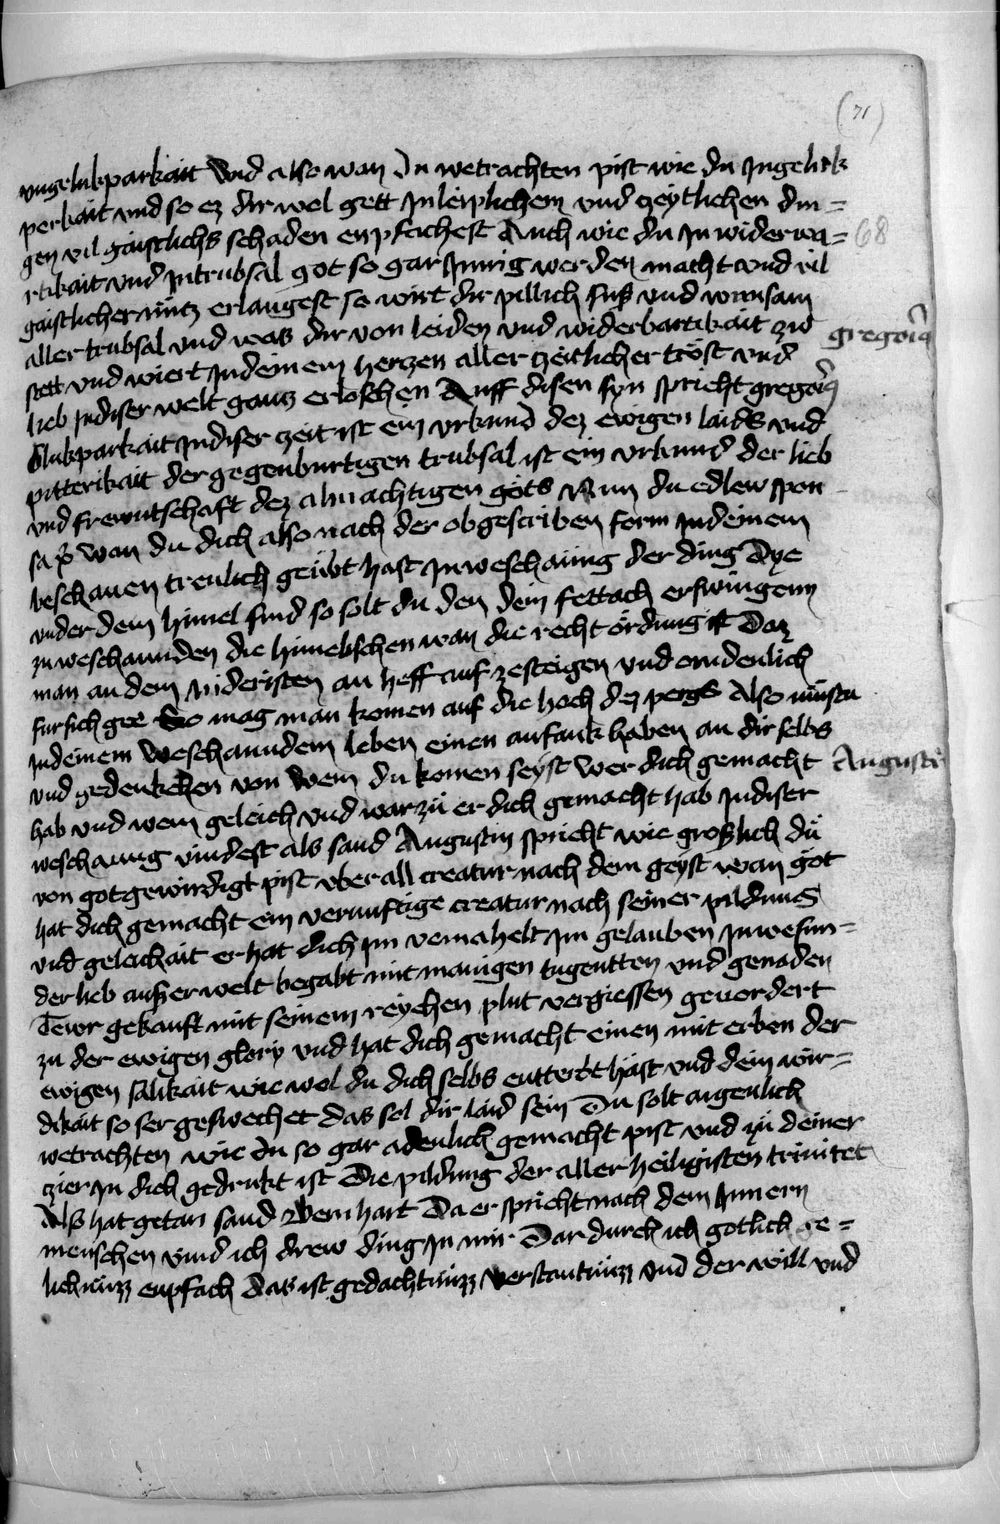 (71)
vngelukparkait Vnd also wan Du wetrachten pist wie du Jn geluck
perkait vnd so ez dir wol gett Jn leiplichem vnd czeytlichen din=
gen vil gaistlichs schaden enpfachest Auch wie du Jn widerwa=
68
rtikait vnd Jn trubsal got so gar Jnnig werden macht vnd vil
gaistlicher nutz erlangest so wirt dir pillich suss vnd wunsam
aller trubsal vnd was dir von leiden vnd widerbartikait zw
gregorius
stett vnd wiert Jn deinem herczen aller czeitlicher tröst vnd
lieb Jn diser welt gancz erloschen Auff disen syn spricht gregorius
Glukparkait Jn diser czeit ist ein vrkund dez ewigen laids vnd
pitterikait der gegenburtigen trubsal ist ein vrkund der lieb
vnd frewntschaft dez almachtigen gots Nun du edlew spon
sa wan du dich also nach der obgescriben form Jn deinem
beschauen treulich geübt hast Jn weschauung der ding Dye
vnder dem himel sind so solt du den dein fettach erswingenn
zu weschaunden die himelischen wan die recht ördnug ist Daz
man an dem nideristen an heff auf zesteigen vnd ordenlich
fur sich gee So mag man komen auf die hoch dez pergs Also müstu
Jn deinem weschaundem leben einen anfank haben an dir selbs
vnd gedenkchen von wem du komen seyst wer dich gemacht
Augustinus
hab vnd wem geleich vnd warzü er dich gemacht hab Jn diser
weschaung vindest als sand Augustin spricht wie groslich dü
von got gewirdigt pist vber all creatur nach dem geyst wan got
hat dich gemacht ein vernuftige creatur nach seiner pildnus
vnd geleichait er hat dich Jm vermahelt Jm gelauben Jn wesun=
der lieb ausserwelt begabt mit manigen tugentten vnd genaden
Tewr gekauft mit seinem reychen plut vergiessen geuordert
zu der ewigen glory vnd hat dich gemacht einen mit erben der
ewigen salikait wie wol du dich selbs entterbt hast vnd dein wir=
dikait so ser geswechet das sol dir laid sein Du solt aigenlich
wetrachten wie du so gar adenlich gemacht pist vnd zü deiner
czier Jn dich gedrukt ist Die pildung der aller heiligisten trinitet
Als hat getan sand Bernhart Da er spricht nach dem Jnnern
menschen vind ich drew ding Jn mir Dar durch ich gotlich ge=
lichnüzz enpfach das ist gedachtnüzz verstantnüzz vnd der will vnd